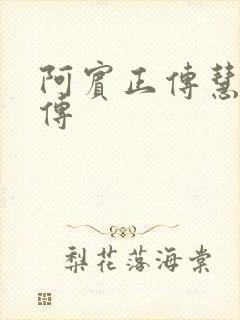 阿賓正傳慧
傳
梨花落海棠